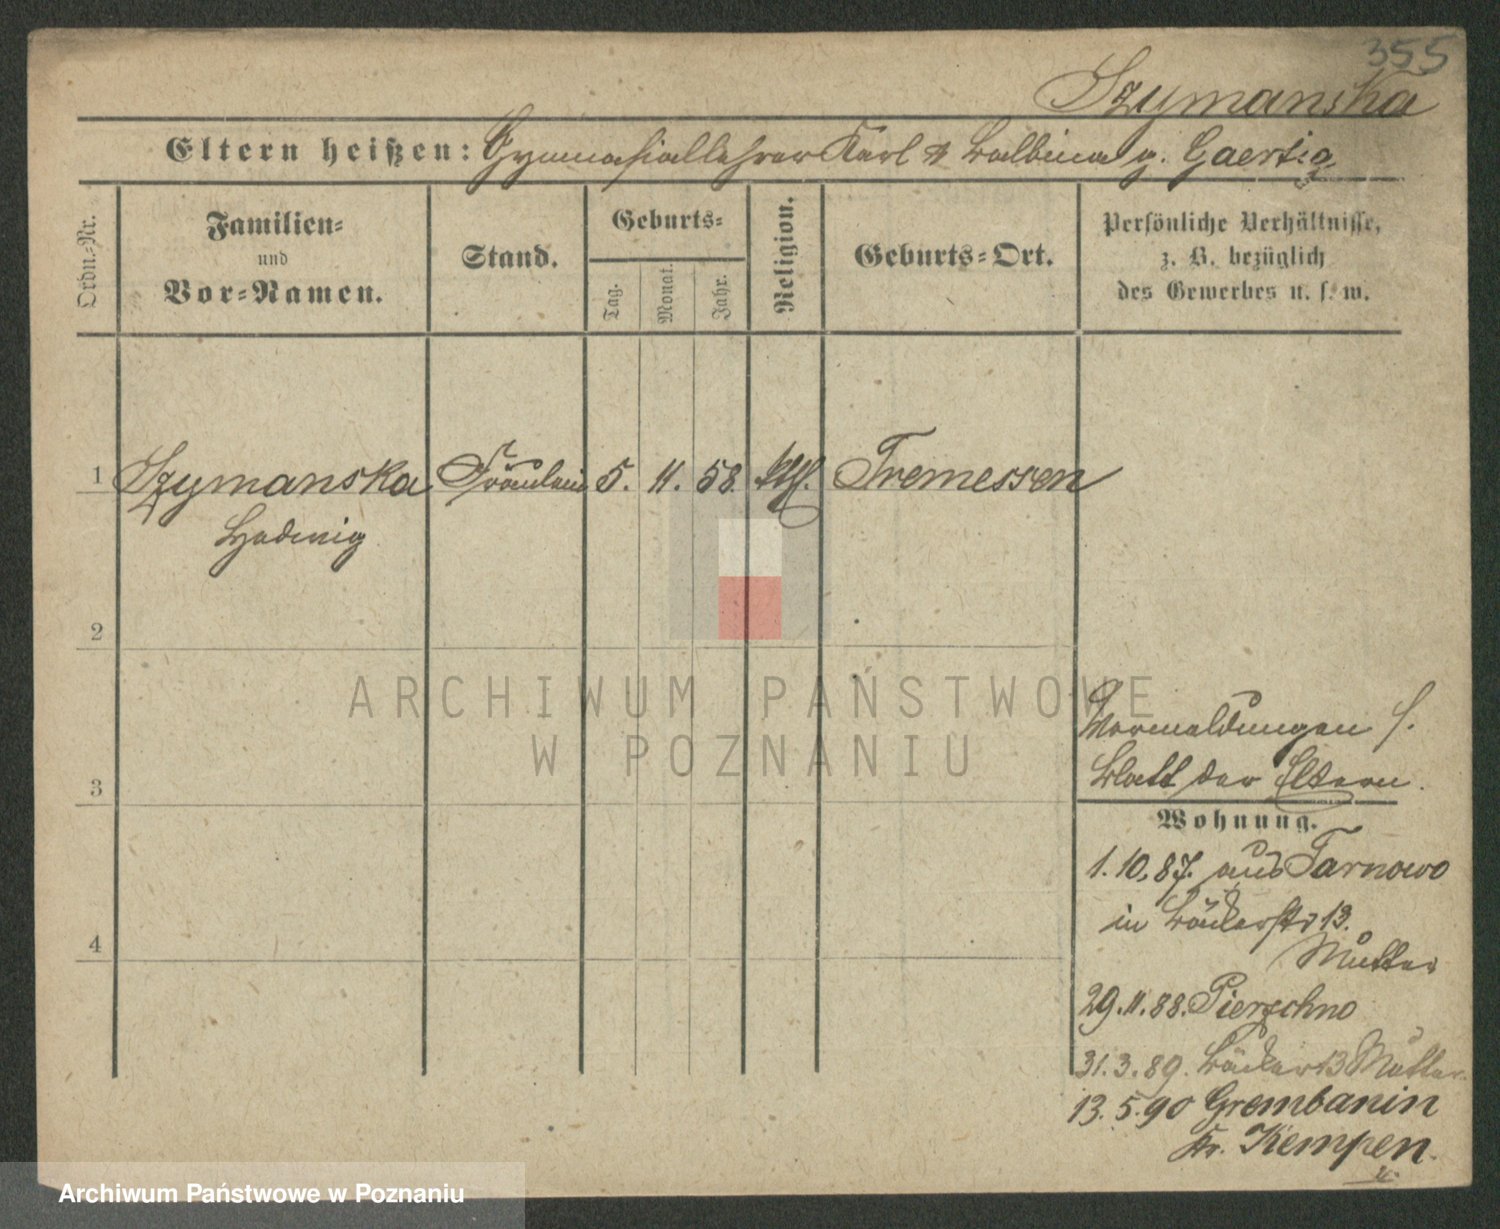 355
Szymanska
Eltern heißen: Gymnasiallehrer Karl & Balbina g. Gaertig
Ordn.-Nr.
Familien-
und
Vor-Namen.
Stand.
Geburts-
Tag.
Monat.
Jahr.
Religion.
Geburts-Ort.
Persönliche Verhältnisse,
z. B. bezüglich
des Gewerbes u. s. w.
1 Szymanska Fräulein 5. 11. 58. kth. Tremessen
Hedwig
2
3
4
ARCHIWUM PAŃSTWOWE
W POZNANIU
Vermeldungen s.
Blatt der Eltern.
Wohnung.
1.10.87. aus Tarnowo
in Bäckerstr 13.
Mutter
29.11.88. Pierzchno
31.3.89. Bäcker 13 Mutter
13.5.90 Grembanin
Kr. Kempen.
Archiwum Państwowe w Poznaniu